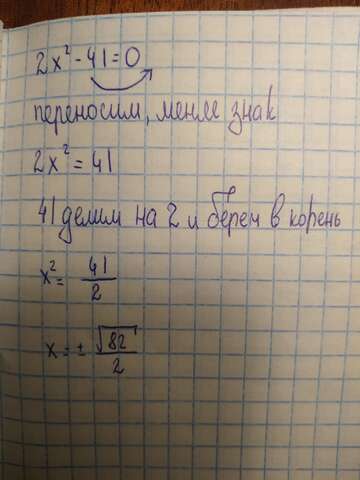 2x² - 41 = 0
переносим, меняя знак
2x² = 41
41 делим на 2 и берем в корень
x² = 41/2
x = ± √82/2